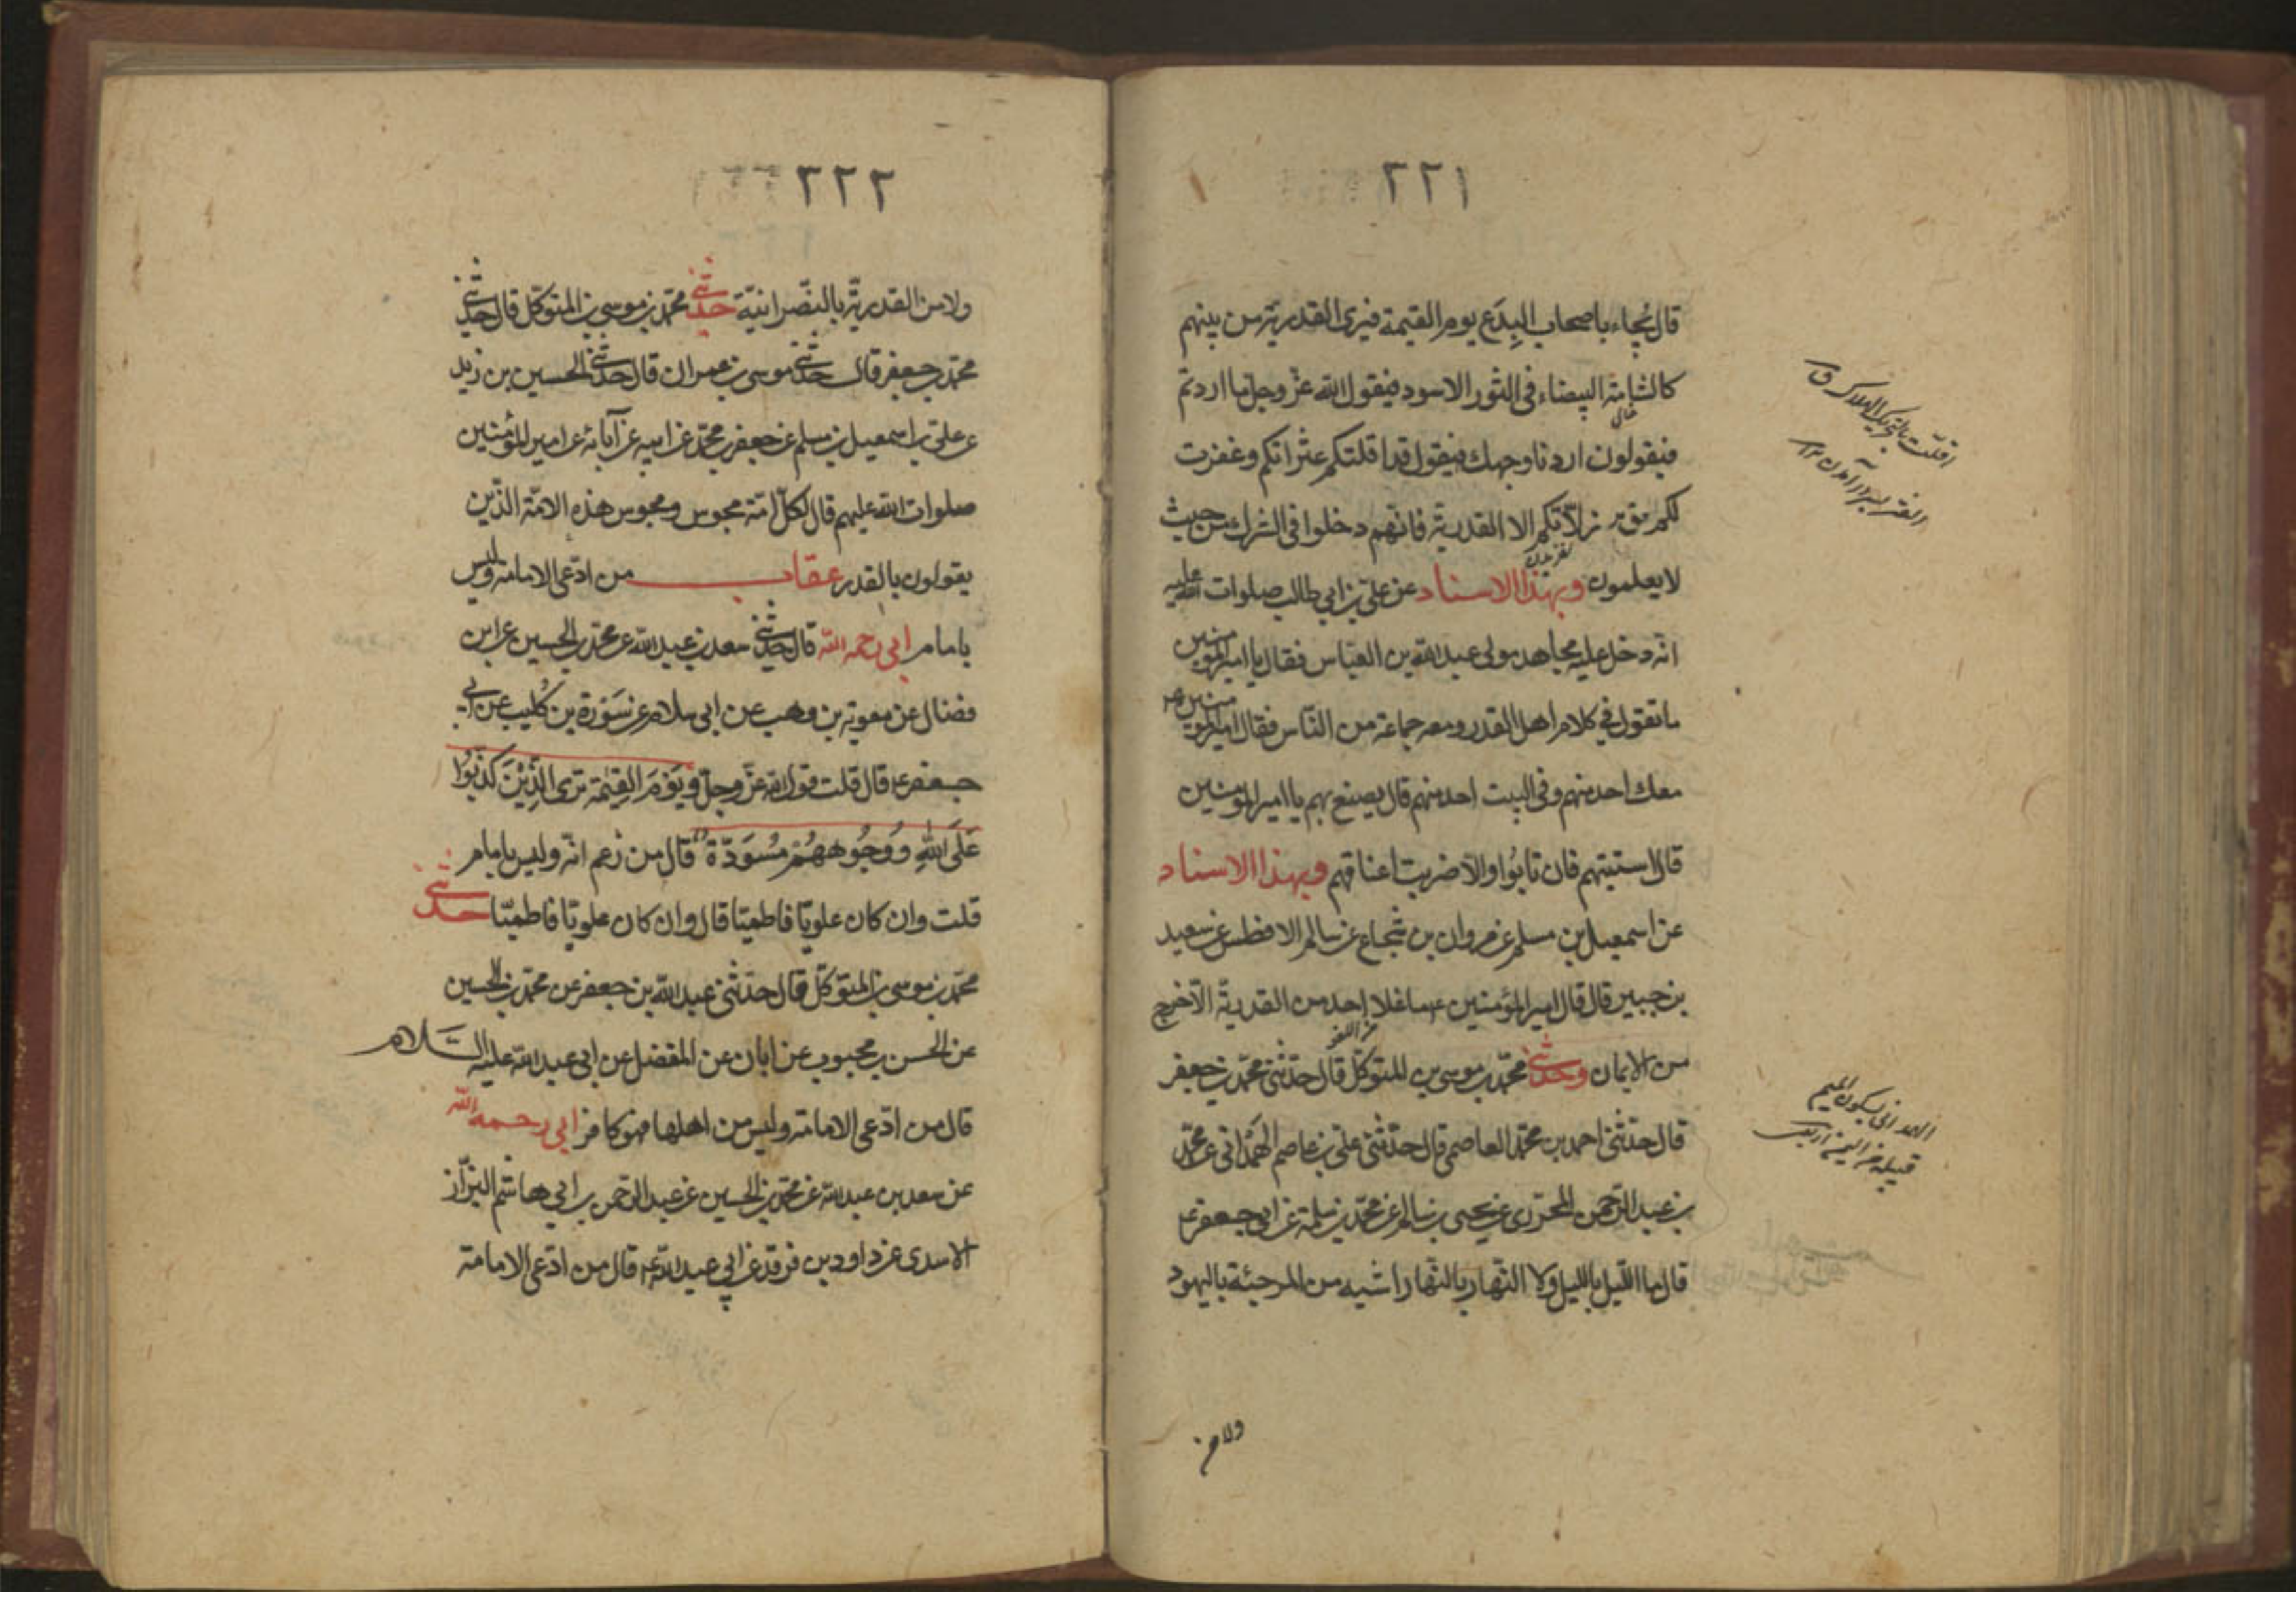 ٢٢١
قال يجاء باصحاب البدع يوم القيمة فيرى القدرية من بينهم
كالشامة البيضاء فى الثور الاسود فيقول الله عز وجل ما اردتم
فيقولون اردنا وجهك فيقول قد اقلتكم عثراتكم وغفرت
لكم زلاتكم الا القدرية فانهم دخلوا فى الشرك من حيث
لا يعلمون وبهذا الاسناد عن على بن ابي طالب صلوات الله عليه
انه دخل عليه مجاهد مولى عبد الله بن العباس فقال يا امير المؤمنين
ما تقول في كلام اهل القدر ومعه جماعة من الناس فقال امير المؤمنين
معك احد منهم وفى البيت احد منهم قال يصنع بهم يا امير المؤمنين
قال استتيبهم فان تابوا والا ضربت اعناقهم وبهذا الاسناد
عن اسمعيل بن مسلم عن مروان بن شجاع عن سالم الافطس عن سعيد
بن جبير قال قال امير المؤمنين ع ما غلا احد من القدرية الا خرج
من الايمان وحدثنى محمد بن موسى بن المتوكل قال حدثنى محمد بن جعفر
قال حدثنى احمد بن محمد العاصمى قال حدثنى على بن عاصم الهمدانى عن محمد
بن عبد الرحمن المحرزى عن يحيى بن سالم عن محمد بن سلمة عن ابى جعفر ع
قال ما الليل بالليل ولا النهار بالنهار اشبه من المرجئة باليهود
ولا من
الهمدانى بسكون الميم
قبيلة من اليمن
٢٢٢
ولا من القدرية بالنصرانية حدثنى محمد بن موسى بن المتوكل قال حدثنى
محمد بن جعفر قال حدثنى موسى بن عمران قال حدثنى الحسين بن زيد
عن على بن اسمعيل بن مسلم عن جعفر بن محمد عن ابيه عن آبائه عن امير المؤمنين
صلوات الله عليهم قال لكل امة مجوس ومجوس هذه الامة الذين
يقولون بالقدر عقاب من ادعى الامامة وليس
بامام ابى رحمه الله قال حدثنى سعد بن عبد الله عن محمد بن الحسين عن ابن
فضال عن معوية بن وهب عن ابى سلام عن سورة بن كليب عن ابى
جعفر ع قال قلت قول الله عز وجل ويوم القيمة ترى الذين كذبوا
على الله ووجوههم مسودة قال من زعم انه وليس بامام
قلت وان كان علويا فاطميا قال وان كان علويا فاطميا حدثنى
محمد بن موسى بن المتوكل قال حدثنى عبد الله بن جعفر عن محمد بن الحسين
عن الحسن بن محبوب عن ابان عن المفضل عن ابى عبد الله عليه السلام
قال من ادعى الامامة وليس من اهلها فهو كافر ابى رحمه الله
عن سعد بن عبد الله عن محمد بن الحسين عن عبد الرحمن بن ابي هاشم البزاز
الاسدى عن داود بن فرقد عن ابي عبد الله ع قال من ادعى الامامة